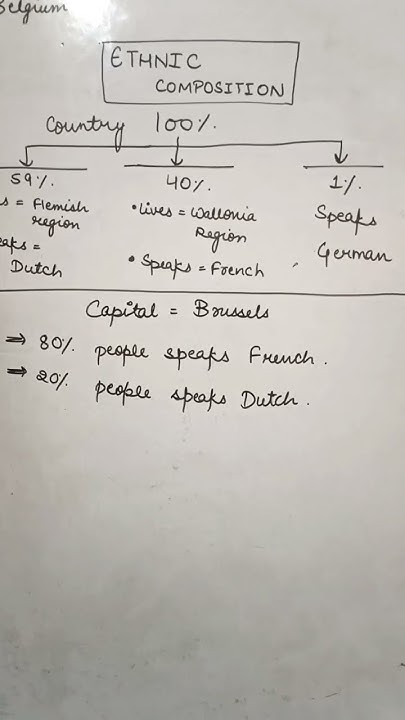 Belgium
ETHNIC
COMPOSITION
Country 100%.
59%.
= Flemish
region
=
Dutch
40%.
• Lives = Wallonia
Region
• Speaks = French
1%.
Speaks
German
Capital = Brussels
⇒ 80%. people speaks French.
⇒ 20%. people speaks Dutch.